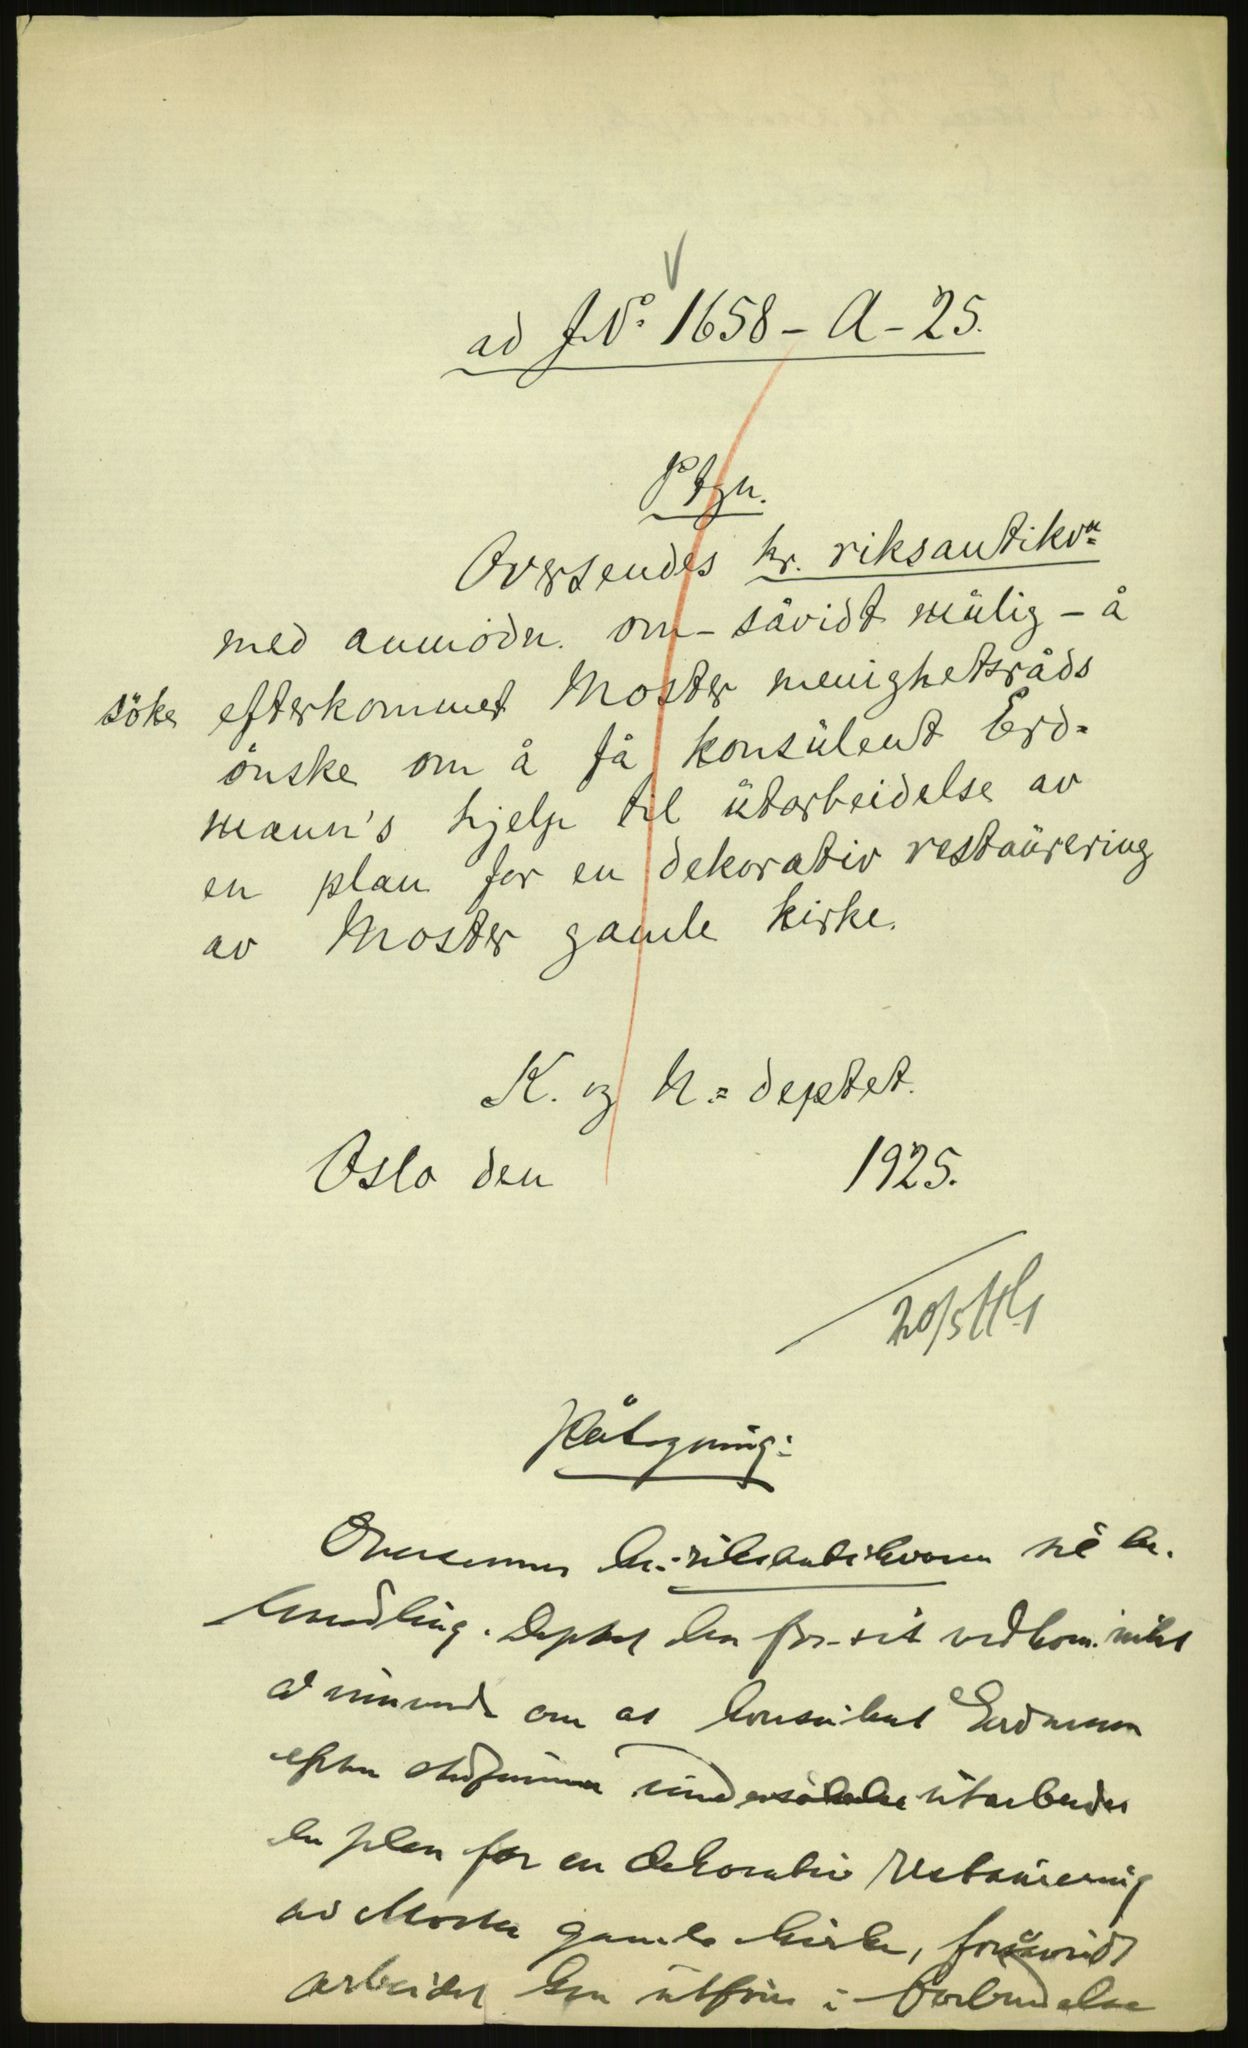 ad J.No 1658 - A - 25.
Ptgn.
Oversendes hr. riksantikvn
med anmodn. om - såvidt mulig - å
søke efterkommet Moster menighetsråds
ønske om å få konsulent Erd-
mann's hjelp til utarbeidelse av
en plan for en dekorativ restaurering
av Moster gamle kirke.
K. og U.=deptet.
Oslo den 1925.
20/5
Påtegning:
Oversendes hr. riksantikvaren til be-
handling. Deptet har for sit vedkom. intet
at innvende om at konsulent Erdmann
efter stedfunnen undersøkelse utarbeider
en plan for en dekorativ restaurering
av Moster gamle kirke, forsåvidt
arbeidet kan utføres i forbindelse